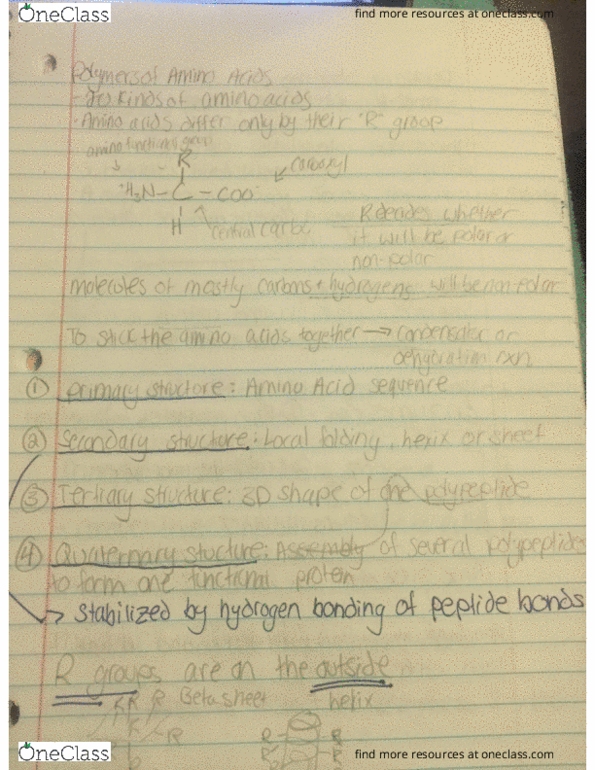 OneClass
find more resources at oneclass.com
Polymers of Amino Acids
- 20 Kinds of amino acids
- Amino acids differ only by their "R" group
amino functional group
R
carboxyl
⁺H₃N-C-COO⁻
H
central carbon
R decides whether
it will be polar or
non-polar
molecules of mostly carbons + hydrogens will be non-polar
To stick the amino acids together → condensation or
dehydration rxn
① primary structure: Amino Acid sequence
② Secondary structure: Local folding, helix or sheet
③ Tertiary structure: 3D shape of one polypeptide
④ Quaternary stucture: Assembly of several polypeptides
to form one functional protein
→ Stabilized by hydrogen bonding of peptide bonds
R groups are on the outside
R R Beta sheet helix
R R R
R R
OneClass
find more resources at oneclass.com